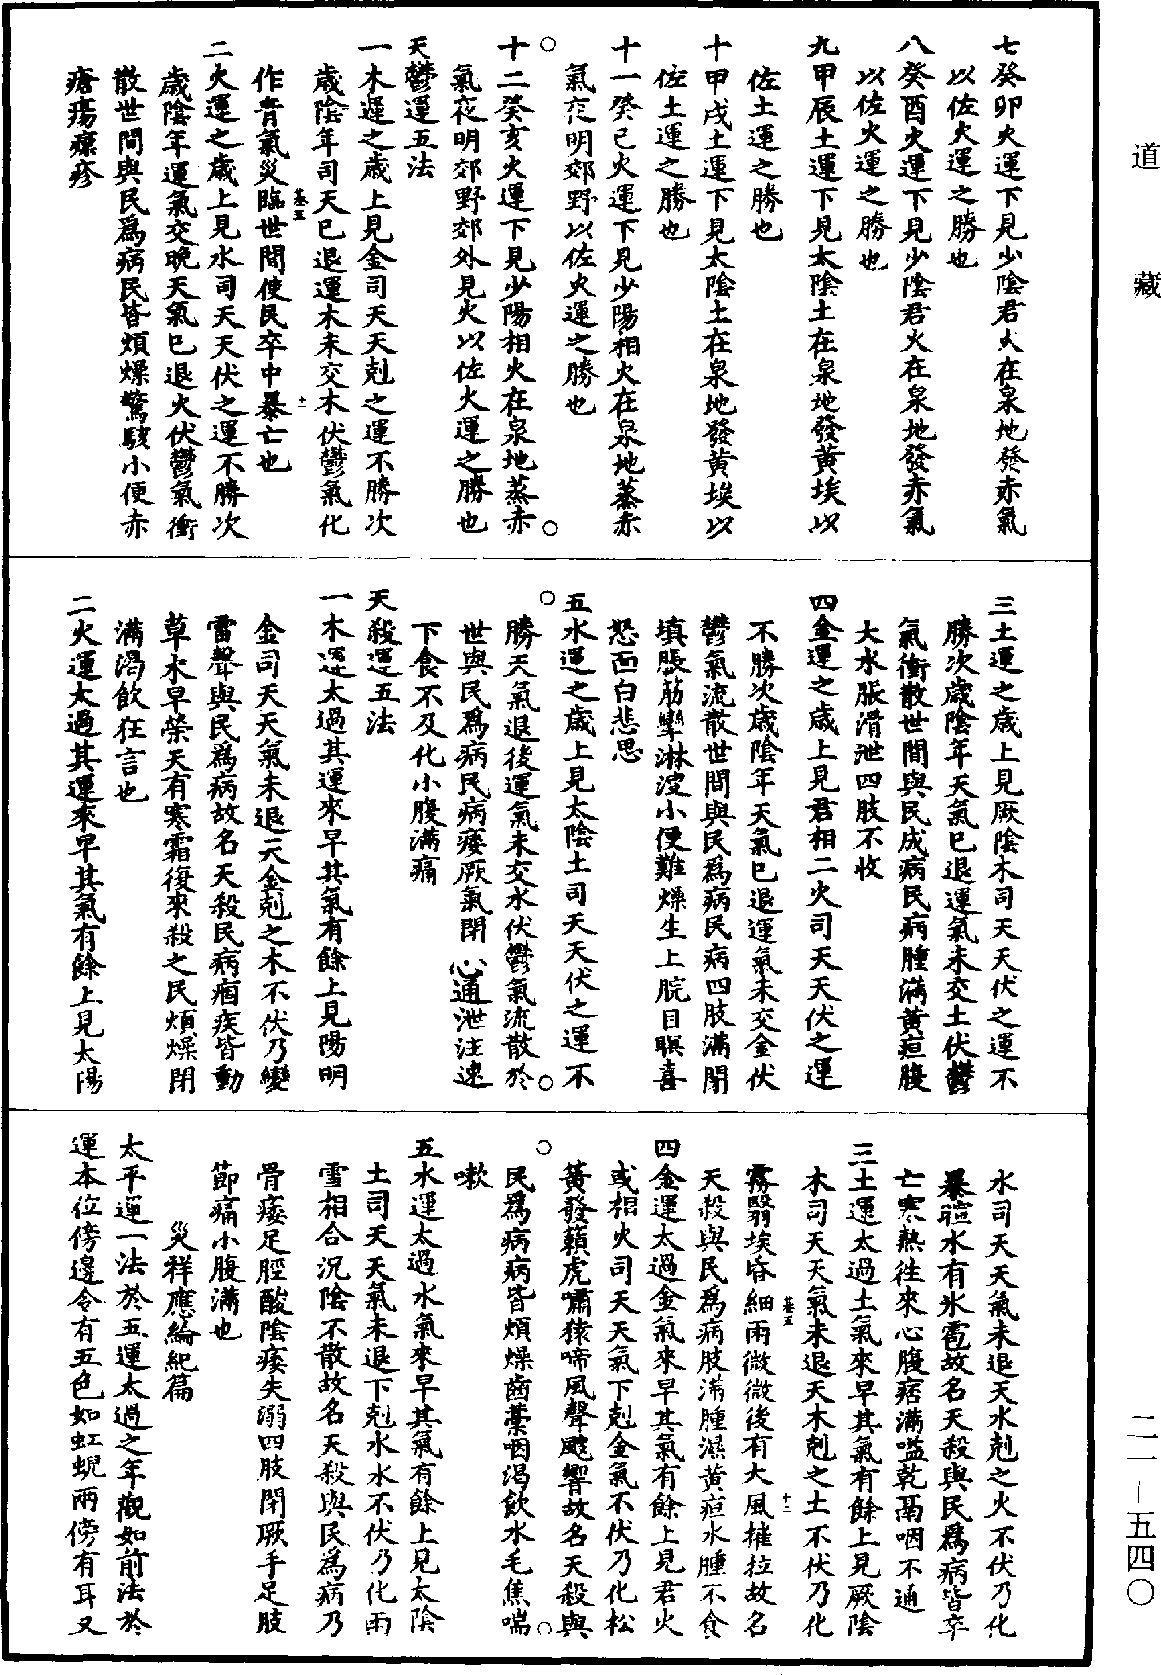 道藏
七癸卯火運下見少陰君火在泉地發赤氣
以佐火運之勝也
八癸酉火運下見少陰君火在泉地發赤氣
以佐火運之勝也
九甲辰土運下見太陰土在泉地發黃埃以
佐土運之勝也
十甲戌土運下見太陰土在泉地發黃埃以
佐土運之勝也
十一癸巳火運下見少陽相火在泉地蒸赤
氣夜明郊野以佐火運之勝也
十二癸亥火運下見少陽相火在泉地蒸赤
氣夜明郊野郊外見火以佐火運之勝也
天鬱運五法
一木運之歲上見金司天天剋之運不勝次
歲陰年司天已退運木未交木伏鬱氣化
作青氣災臨世間使民卒中暴亡也
二火運之歲上見水司天天伏之運不勝次
歲陰年運氣交晚天氣已退火伏鬱氣衝
散世間與民爲病民皆煩燥驚駭小便赤
瘡瘍㿋疹
三土運之歲上見厥陰木司天天伏之運不
勝次歲陰年天氣已退運氣未交土伏鬱
氣衝散世間與民成病民病腫滿黃疸腹
大水脹滑泄四肢不收
四金運之歲上見君相二火司天天伏之運
不勝次歲陰年天氣已退運氣未交金伏
鬱氣流散世間與民爲病民病四肢滿閉
填脹筋攣淋澁小便難燥生上脘目瞑喜
怒面白悲思
五水運之歲上見太陰土司天天伏之運不
勝天氣退後運氣未交水伏鬱氣流散於
世與民爲病民病痿厥氣閉心通泄注速
下食不及化小腹滿痛
天殺運五法
一木運太過其運來早其氣有餘上見陽明
金司天天氣未退天金剋之木不伏乃變
雷聲與民爲病故名天殺民病痼疾皆動
草木早榮天有寒霜復來殺之民煩燥閉
滿渴飲狂言也
二火運太過其運來早其氣有餘上見太陽
水司天天氣未退天水剋之火不伏乃化
暴暄水有氷雹故名天殺與民爲病皆卒
亡寒熱往來心腹痞滿嗌乾鬲咽不通
三土運太過土氣來早其氣有餘上見厥陰
木司天天氣未退天木剋之土不伏乃化
霧翳埃昏細雨微微後有大風摧拉故名
天殺與民爲病肢滿腫濕黃疸水腫不食
四金運太過金氣來早其氣有餘上見君火
或相火司天天氣下剋金氣不伏乃化松
簧發籟虎嘯猿啼風聲颼響故名天殺與
民爲病病皆煩燥齒藁咽渴飲水毛焦喘
嗽
五水運太過水氣來早其氣有餘上見太陰
土司天天氣未退下剋水水不伏乃化雨
雪相合沉陰不散故名天殺與民爲病乃
骨痿足脛酸陰痿失溺四肢閉厥手足肢
節痛小腹滿也
災祥應綸紀篇
太平運一法於五運太過之年觀如前法於
運本位傍邊令有五色如虹蜺兩傍有耳又
二一—五四〇